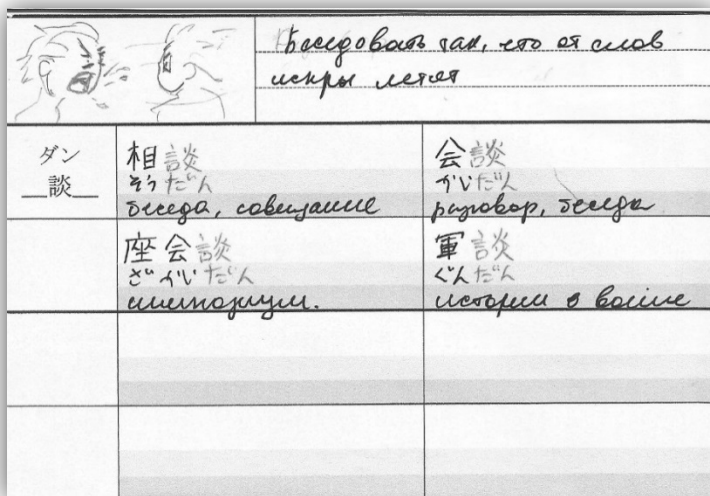 Беседовать так, что от слов
искры летят
ダン
談
相談
そうだん
беседа, совещание
会談
かいだん
разговор, беседа
座会談
ざかいだん
симпозиум.
軍談
ぐんだん
истории о войне